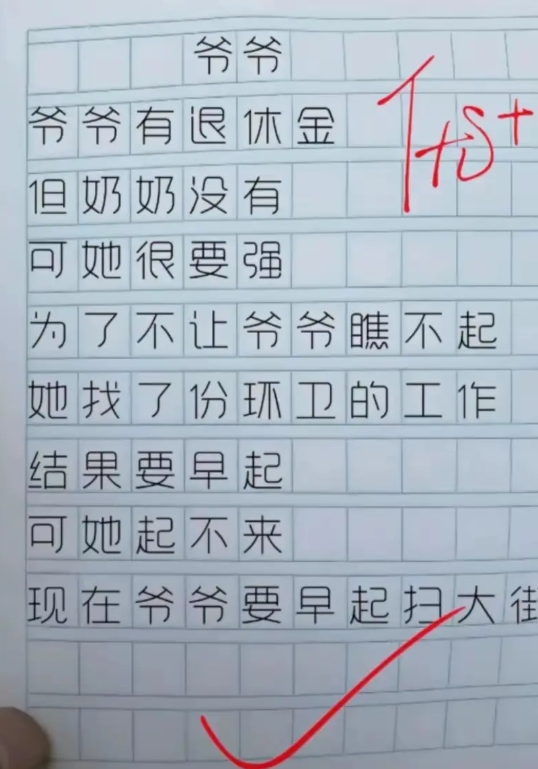 爷爷
爷爷有退休金
但奶奶没有
可她很要强
为了不让爷爷瞧不起
她找了份环卫的工作
结果要早起
可她起不来
现在爷爷要早起扫大街